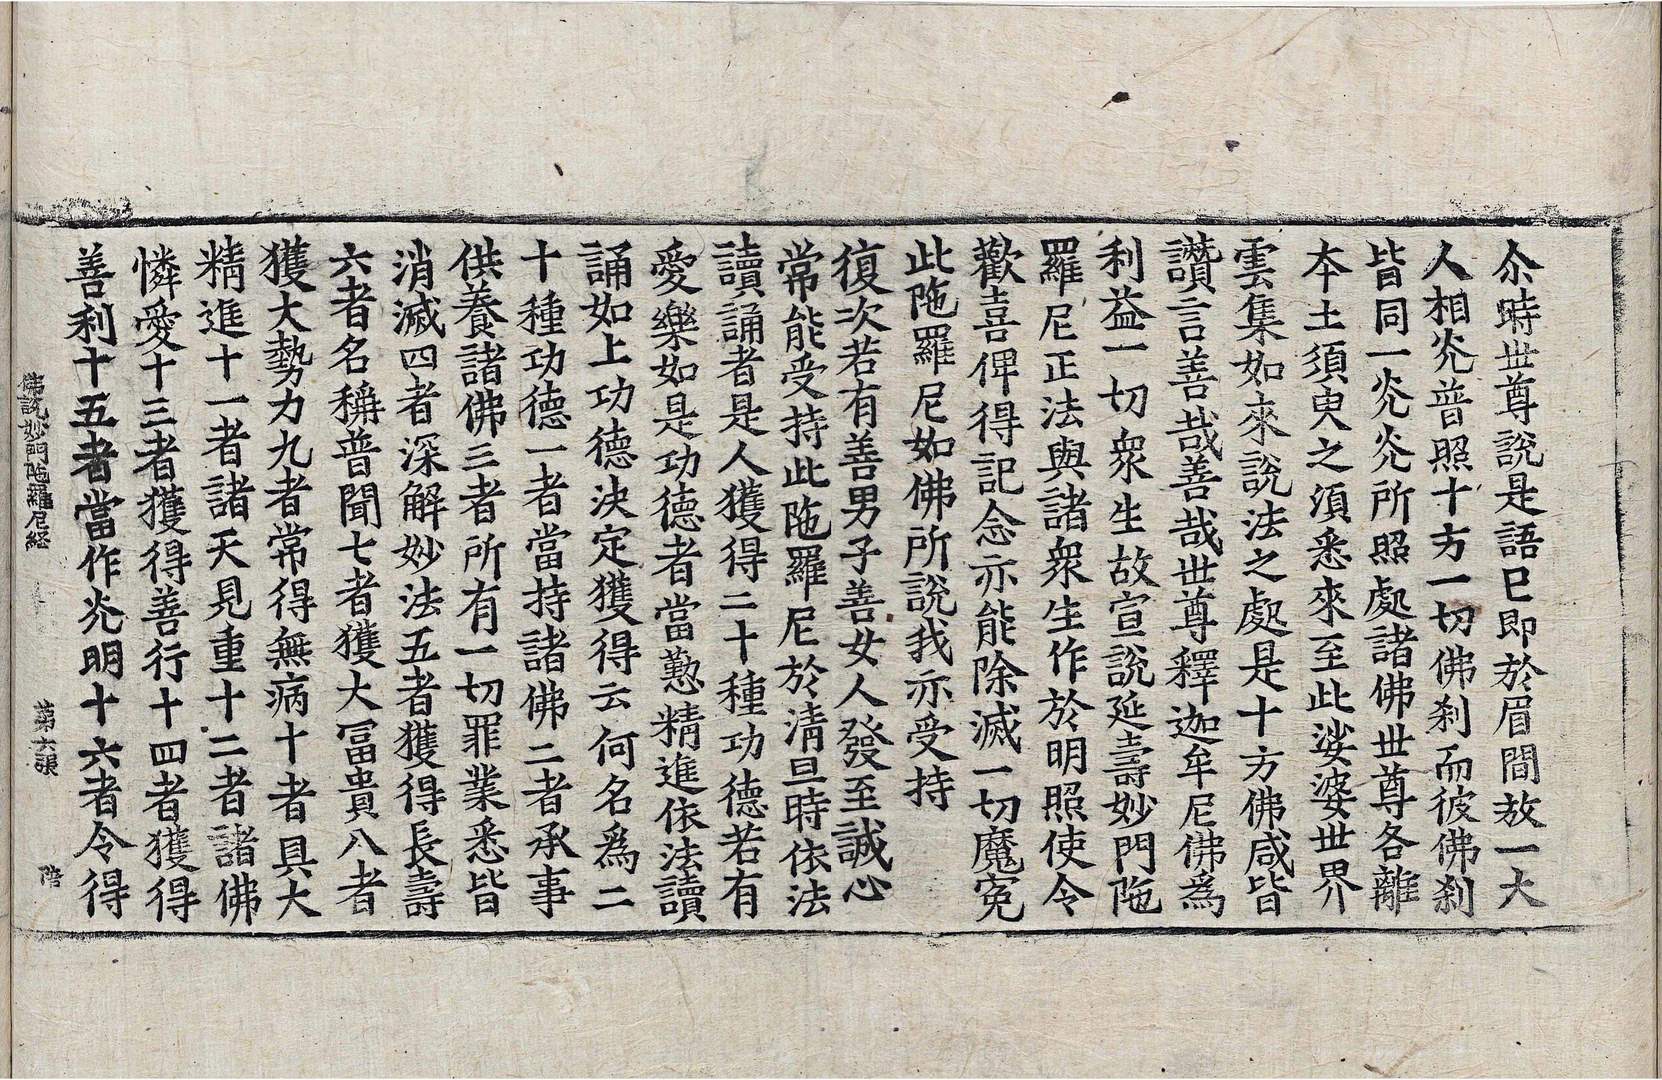 尒時世尊說是語已即於眉間放一大
人相炗普照十方一切佛刹而彼佛刹
皆同一炗炗所照處諸佛世尊各離
夲土須臾之湏悉來至此娑婆世界
雲集如來說法之處是十方佛咸皆
讚言善哉善哉世尊釋迦牟尼佛爲
利益一切衆生故宣說延壽妙門陁
羅尼正法與諸衆生作於明照使令
歡喜俾得記念亦能除滅一切魔寃
此陁羅尼如佛所說我亦受持
復次若有善男子善女人發至誠心
常能受持此陁羅尼於淸旦時依法
讀誦者是人獲得二十種功德若有
愛樂如是功德者當懃精進依法讀
誦如上功德決定獲得云何名爲二
十種功德一者當持諸佛二者承事
供養諸佛三者所有一切罪業悉皆
消滅四者深解妙法五者獲得長壽
六者名稱普聞七者獲大冨貴八者
獲大勢力九者常得無病十者具大
精進十一者諸天見重十二者諸佛
憐愛十三者獲得善行十四者獲得
善利十五者當作炗明十六者令得
佛說妙門陁羅尼経 第六張 陪